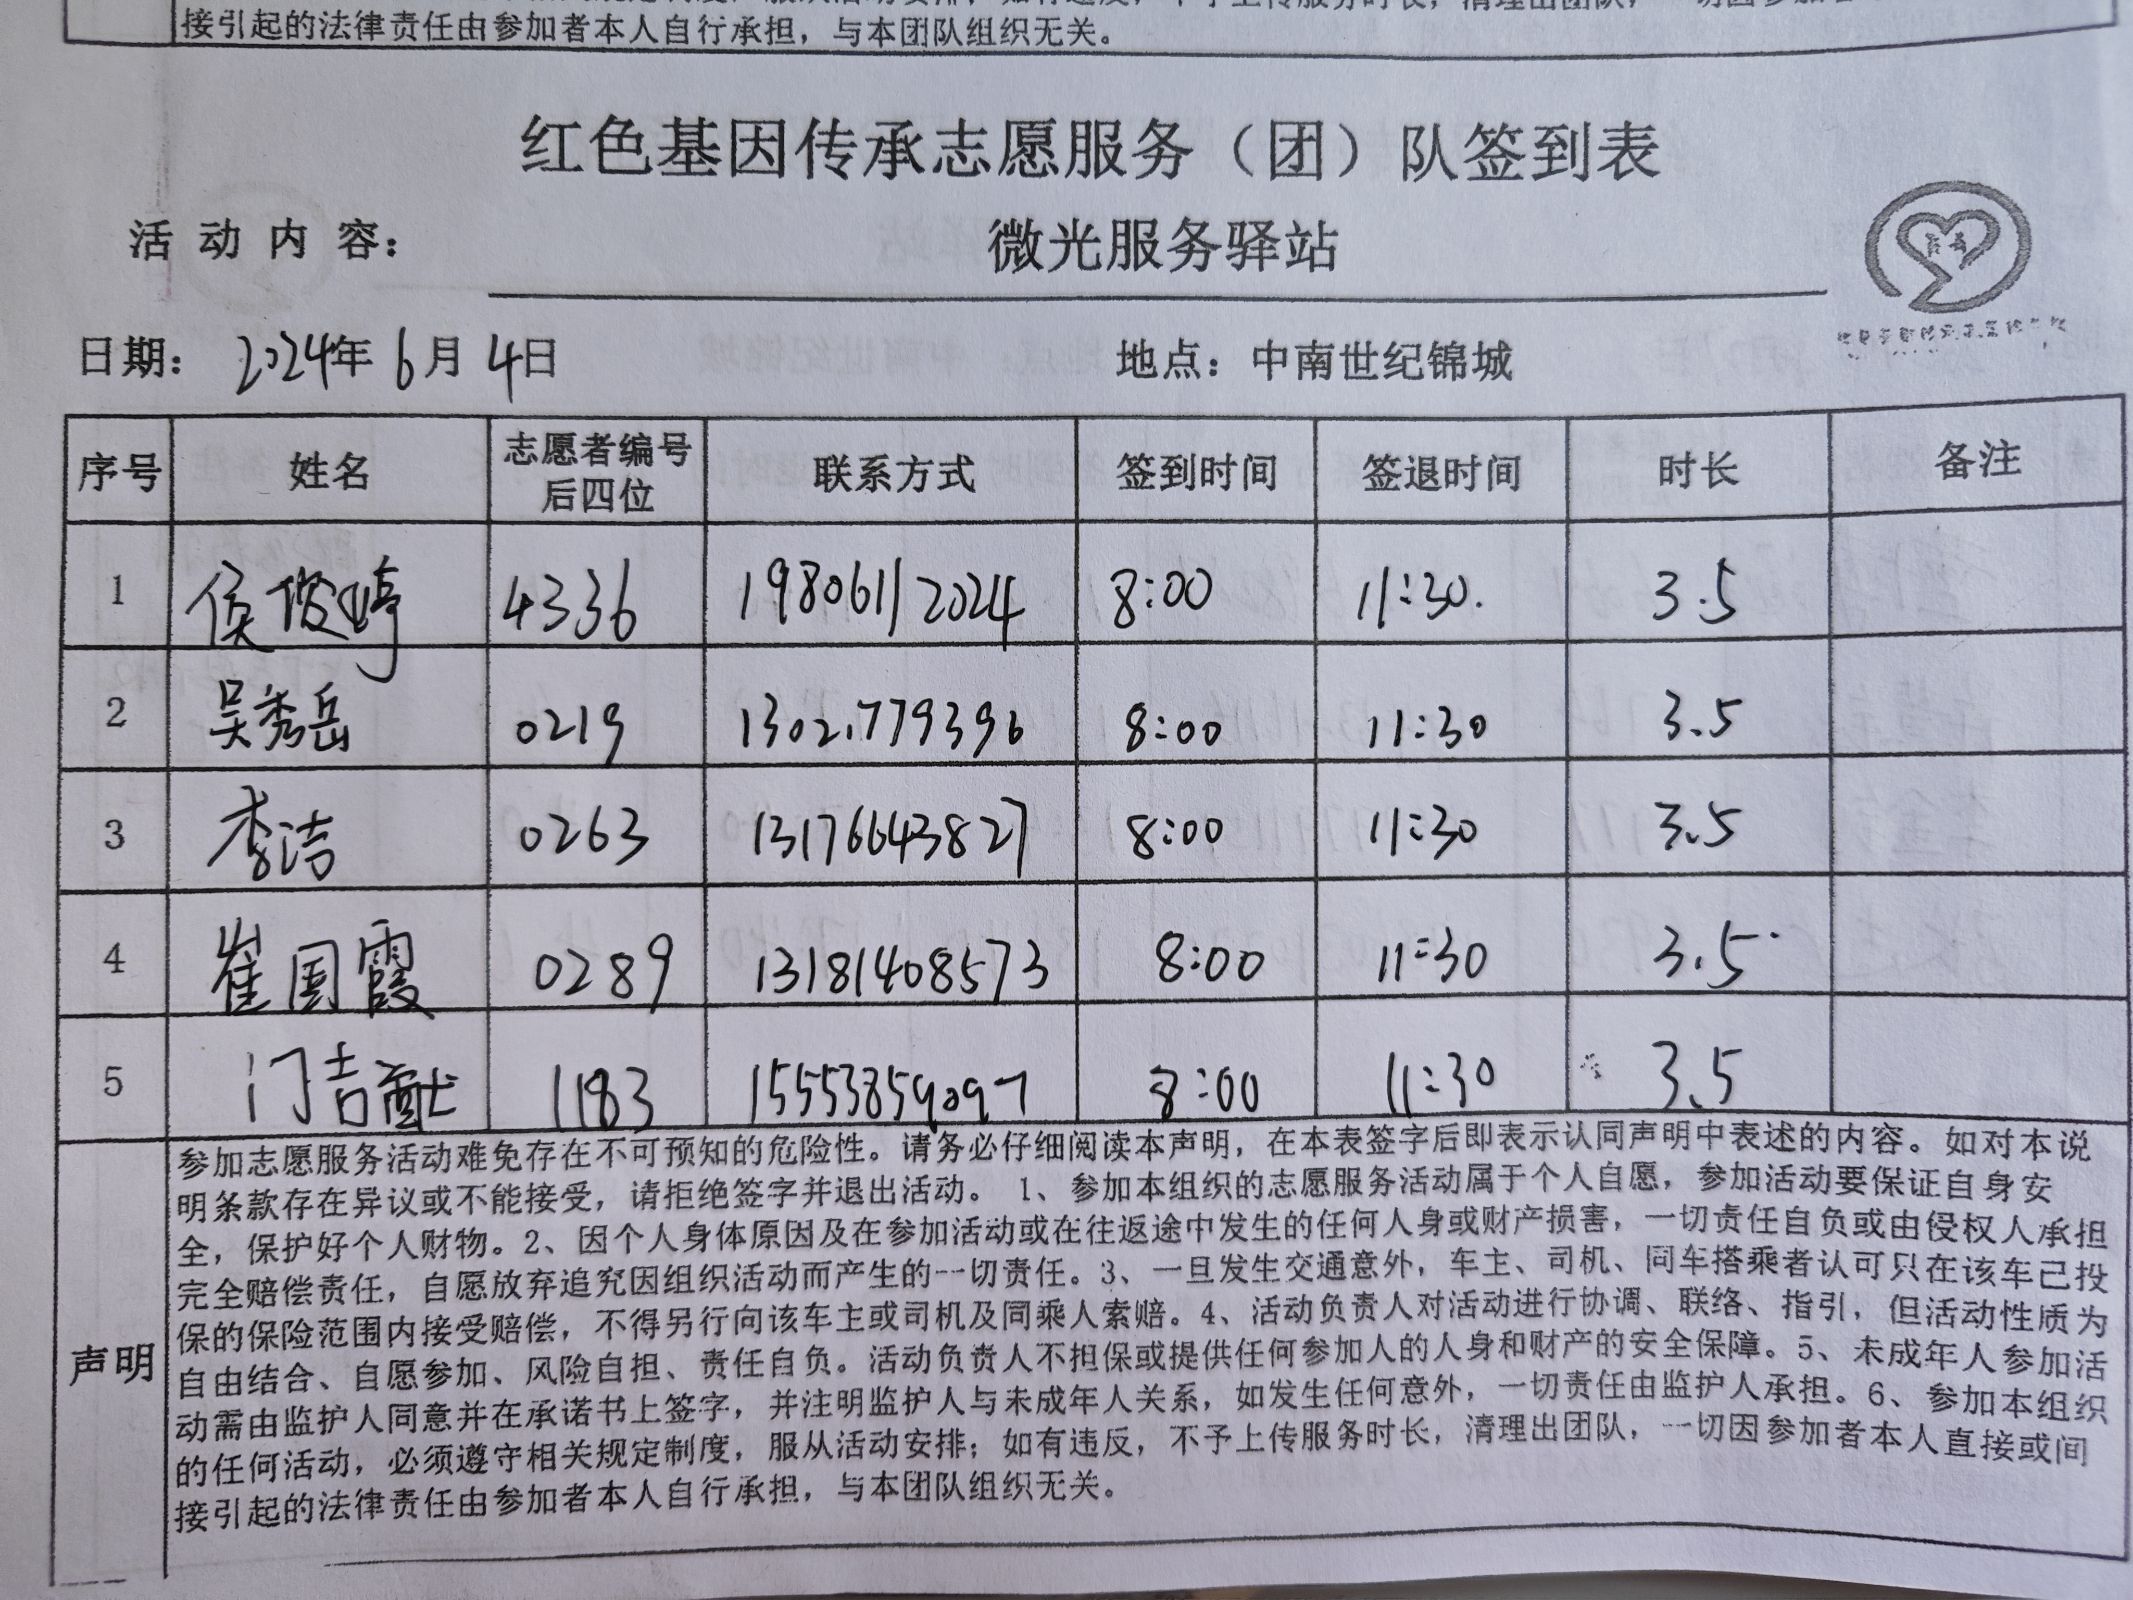 接引起的法律责任由参加者本人自行承担，与本团队组织无关。
红色基因传承志愿服务（团）队签到表
活动内容： 微光服务驿站
日期： 2024年6月4日 地点：中南世纪锦城
序号 姓名 志愿者编号后四位 联系方式 签到时间 签退时间 时长 备注
1 侯俊婷 4336 19806112024 8:00 11:30. 3.5
2 吴秀岳 0219 1302.779396 8:00 11:30 3.5
3 李洁 0263 13176643827 8:00 11:30 3.5
4 崔国霞 0289 13181408573 8:00 11:30 3.5
5 门吉献 1183 15553859097 8:00 11:30 3.5
声明
参加志愿服务活动难免存在不可预知的危险性。请务必仔细阅读本声明，在本表签字后即表示认同声明中表述的内容。如对本说
明条款存在异议或不能接受，请拒绝签字并退出活动。 1、参加本组织的志愿服务活动属于个人自愿，参加活动要保证自身安
全，保护好个人财物。2、因个人身体原因及在参加活动或在往返途中发生的任何人身或财产损害，一切责任自负或由侵权人承担
完全赔偿责任，自愿放弃追究因组织活动而产生的一切责任。3、一旦发生交通意外，车主、司机、同车搭乘者认可只在该车已投
保的保险范围内接受赔偿，不得另行向该车主或司机及同乘人索赔。4、活动负责人对活动进行协调、联络、指引，但活动性质为
自由结合、自愿参加、风险自担、责任自负。活动负责人不担保或提供任何参加人的人身和财产的安全保障。5、未成年人参加活
动需由监护人同意并在承诺书上签字，并注明监护人与未成年人关系，如发生任何意外，一切责任由监护人承担。6、参加本组织
的任何活动，必须遵守相关规定制度，服从活动安排；如有违反，不予上传服务时长，清理出团队，一切因参加者本人直接或间
接引起的法律责任由参加者本人自行承担，与本团队组织无关。